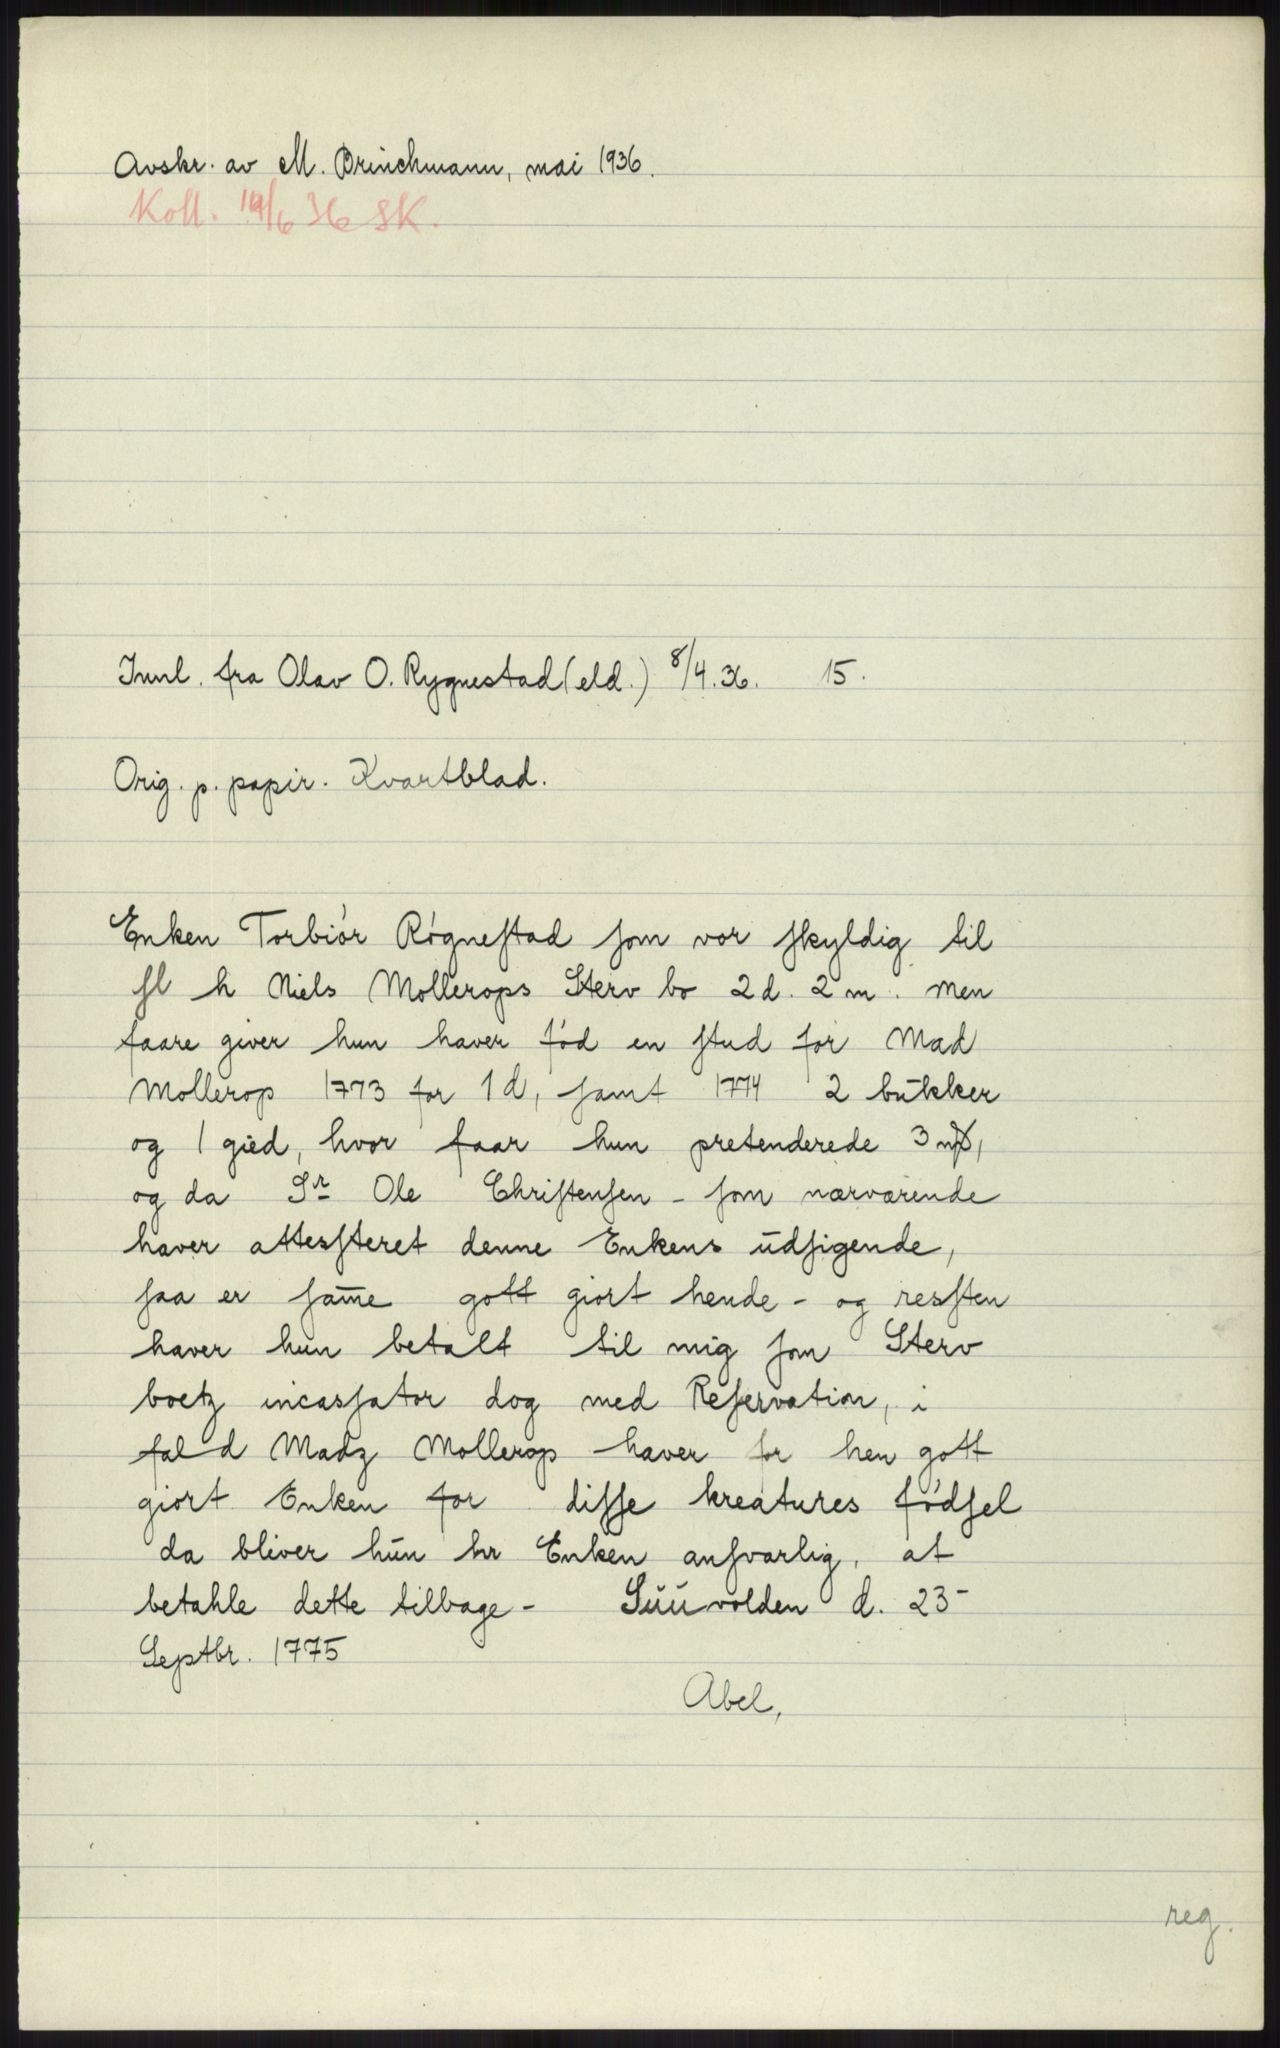 Avskr. av M. Brinchmann, mai 1936.
Koll. 19/6 36 SK.
Innl. fra Olav O. Rygnestad (eld.) 8/4.36. 15.
Orig. p. papir. Kvartblad.
Enken Torbiör Rögneſtad ſom vor ſkyldig til
ſl h Niels Mollerops Sterv bo 2 d. 2 m. men
faare giver hun haver föd en ſtud for Mad
Mollerop 1773 for 1 d, ſamt 1774 2 bükker
og 1 gied, hvor faar hun pretenderede 3
og da Sr Ole Chriſtenſen - ſom nærværende
haver attesſteret denne Enkens üdſigende,
ſaa er ſam̄e gott giort hende - og resſten
haver hun betalt til mig ſom Sterv
boetz incasſator dog med Reſervation, i
fal d Madz Mollerop haver for hen gott
giort Enken for diſſe kreatures födſel
da bliver hün hr Enken anſvarlig, at
betahle dette tilbage - Süüvolden d. 23-
Septbr. 1775
Abel,
reg.